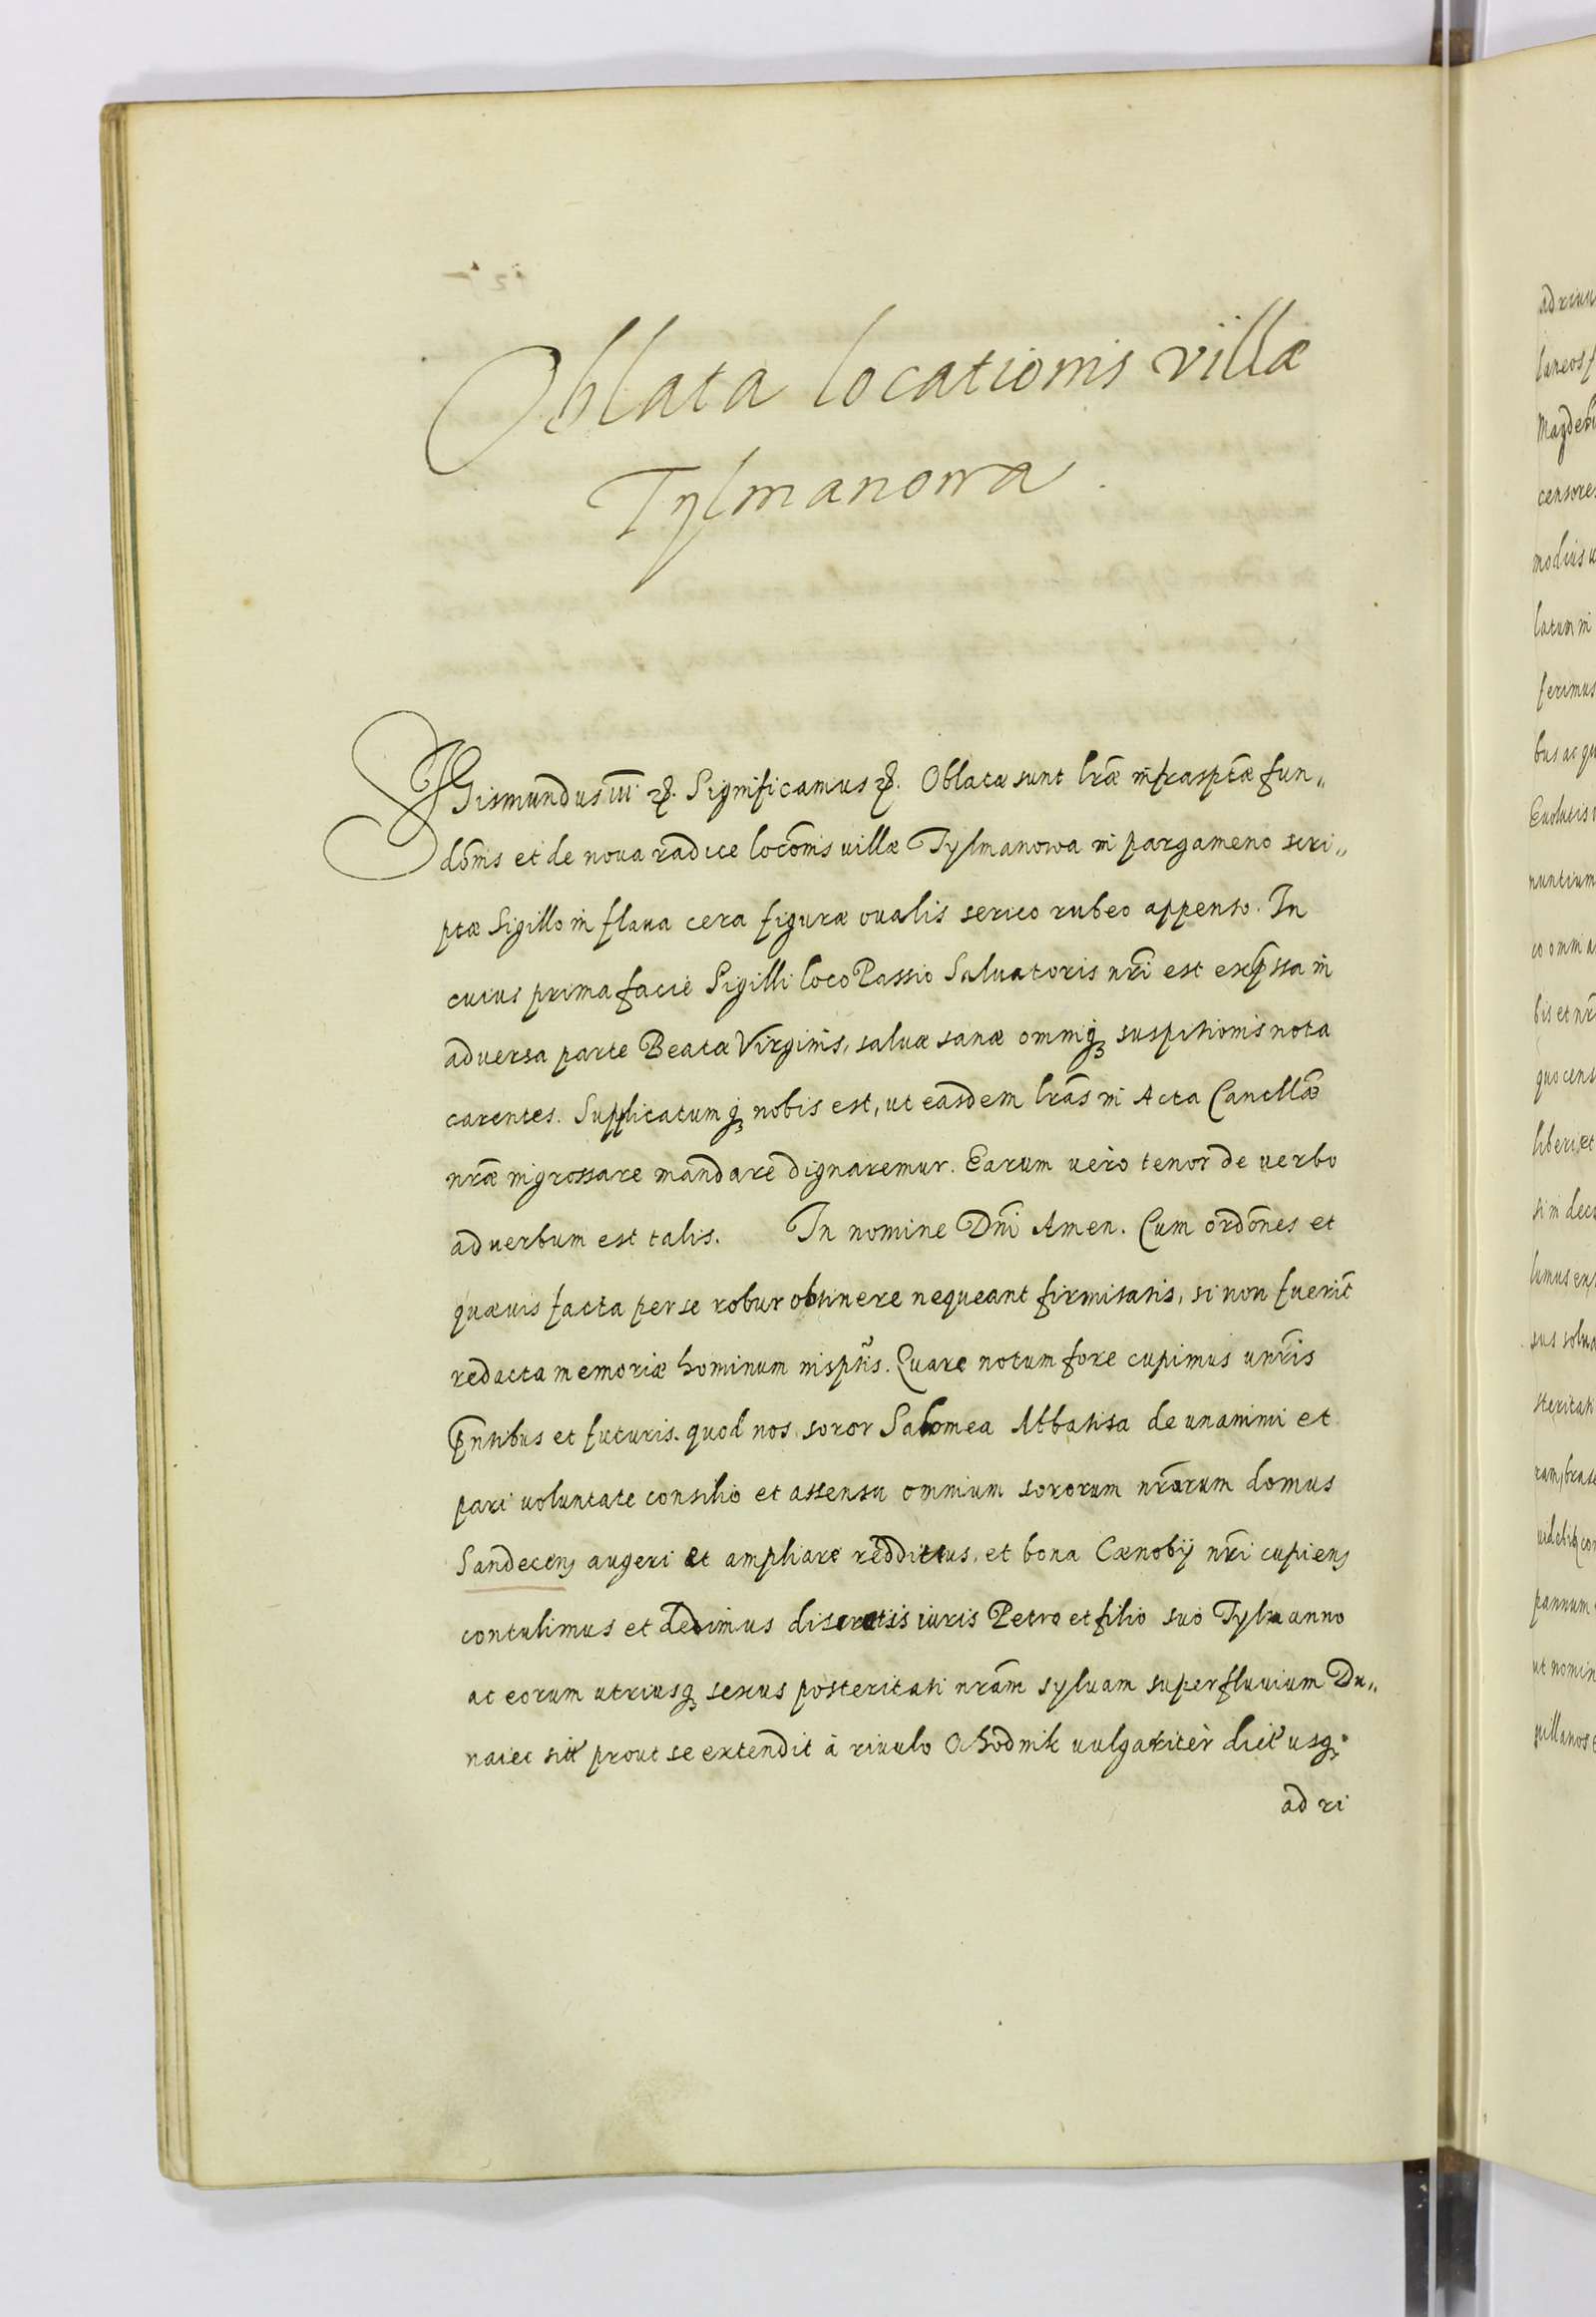 Oblata locationis villæ
Tylmanowa.
SIGismundus III etc. Significamus etc. Oblatæ sunt lr̃æ infrasptæ fun„
dõnis et de noua radice locõnis uillæ Tylmanowa in pargameno scri„
ptæ Sigillo in flaua cera figuræ oualis serico rubeo appenso. In
cuius prima facie Sigilli loco Passio Saluatoris nr̃i est exp̃ssa in
aduersa parte Beatæ Virginis, saluæ sanæ omniq; suspitionis nota
carentes. Supplicatumq; nobis est, ut easdem lr̃as in Acta Cancllæ
nr̃æ ingrossare mandare dignaremur. Earum uerò tenor de uerbo
ad uerbum est talis. In nomine Dñi Amen. Cum ordõnes et
quæuis facta per se robur obtinere nequeant firmitatis, si non fuerit̃
redacta memoriæ hominum inscptis. Quare notum fore cupimus unr̃is
p̃ntibus et futuris. quod nos soror Salomea Abbatisa de unanimi et
pari uoluntate consilio et assensu omnium sororum nr̃arum domus
Sandecens augeri et ampliare reddittus, et bona Cænobÿ nr̃i cupiens
contulimus et dedimus discretis iuris Petro et filio suo Tylmanno
ac eorum utriusq; sexus posteritati nr̃am syluam super fluuium Du„
naiec sitt̃ prout se extendit à riuulo Ohodnik uulgaritèr dict̃ usq;
ad ri
adriuu
laneos f
Magdeb
censores
modius u
latum in
ferimus
bus ac qu
Euolutis
nuntium
co omni a
bis et nr̃
quo cens
liberi et
si in deca
lumus
sus solua
steritati
ram, bras
uidelicq con
pannum
ut nomin
uillanos